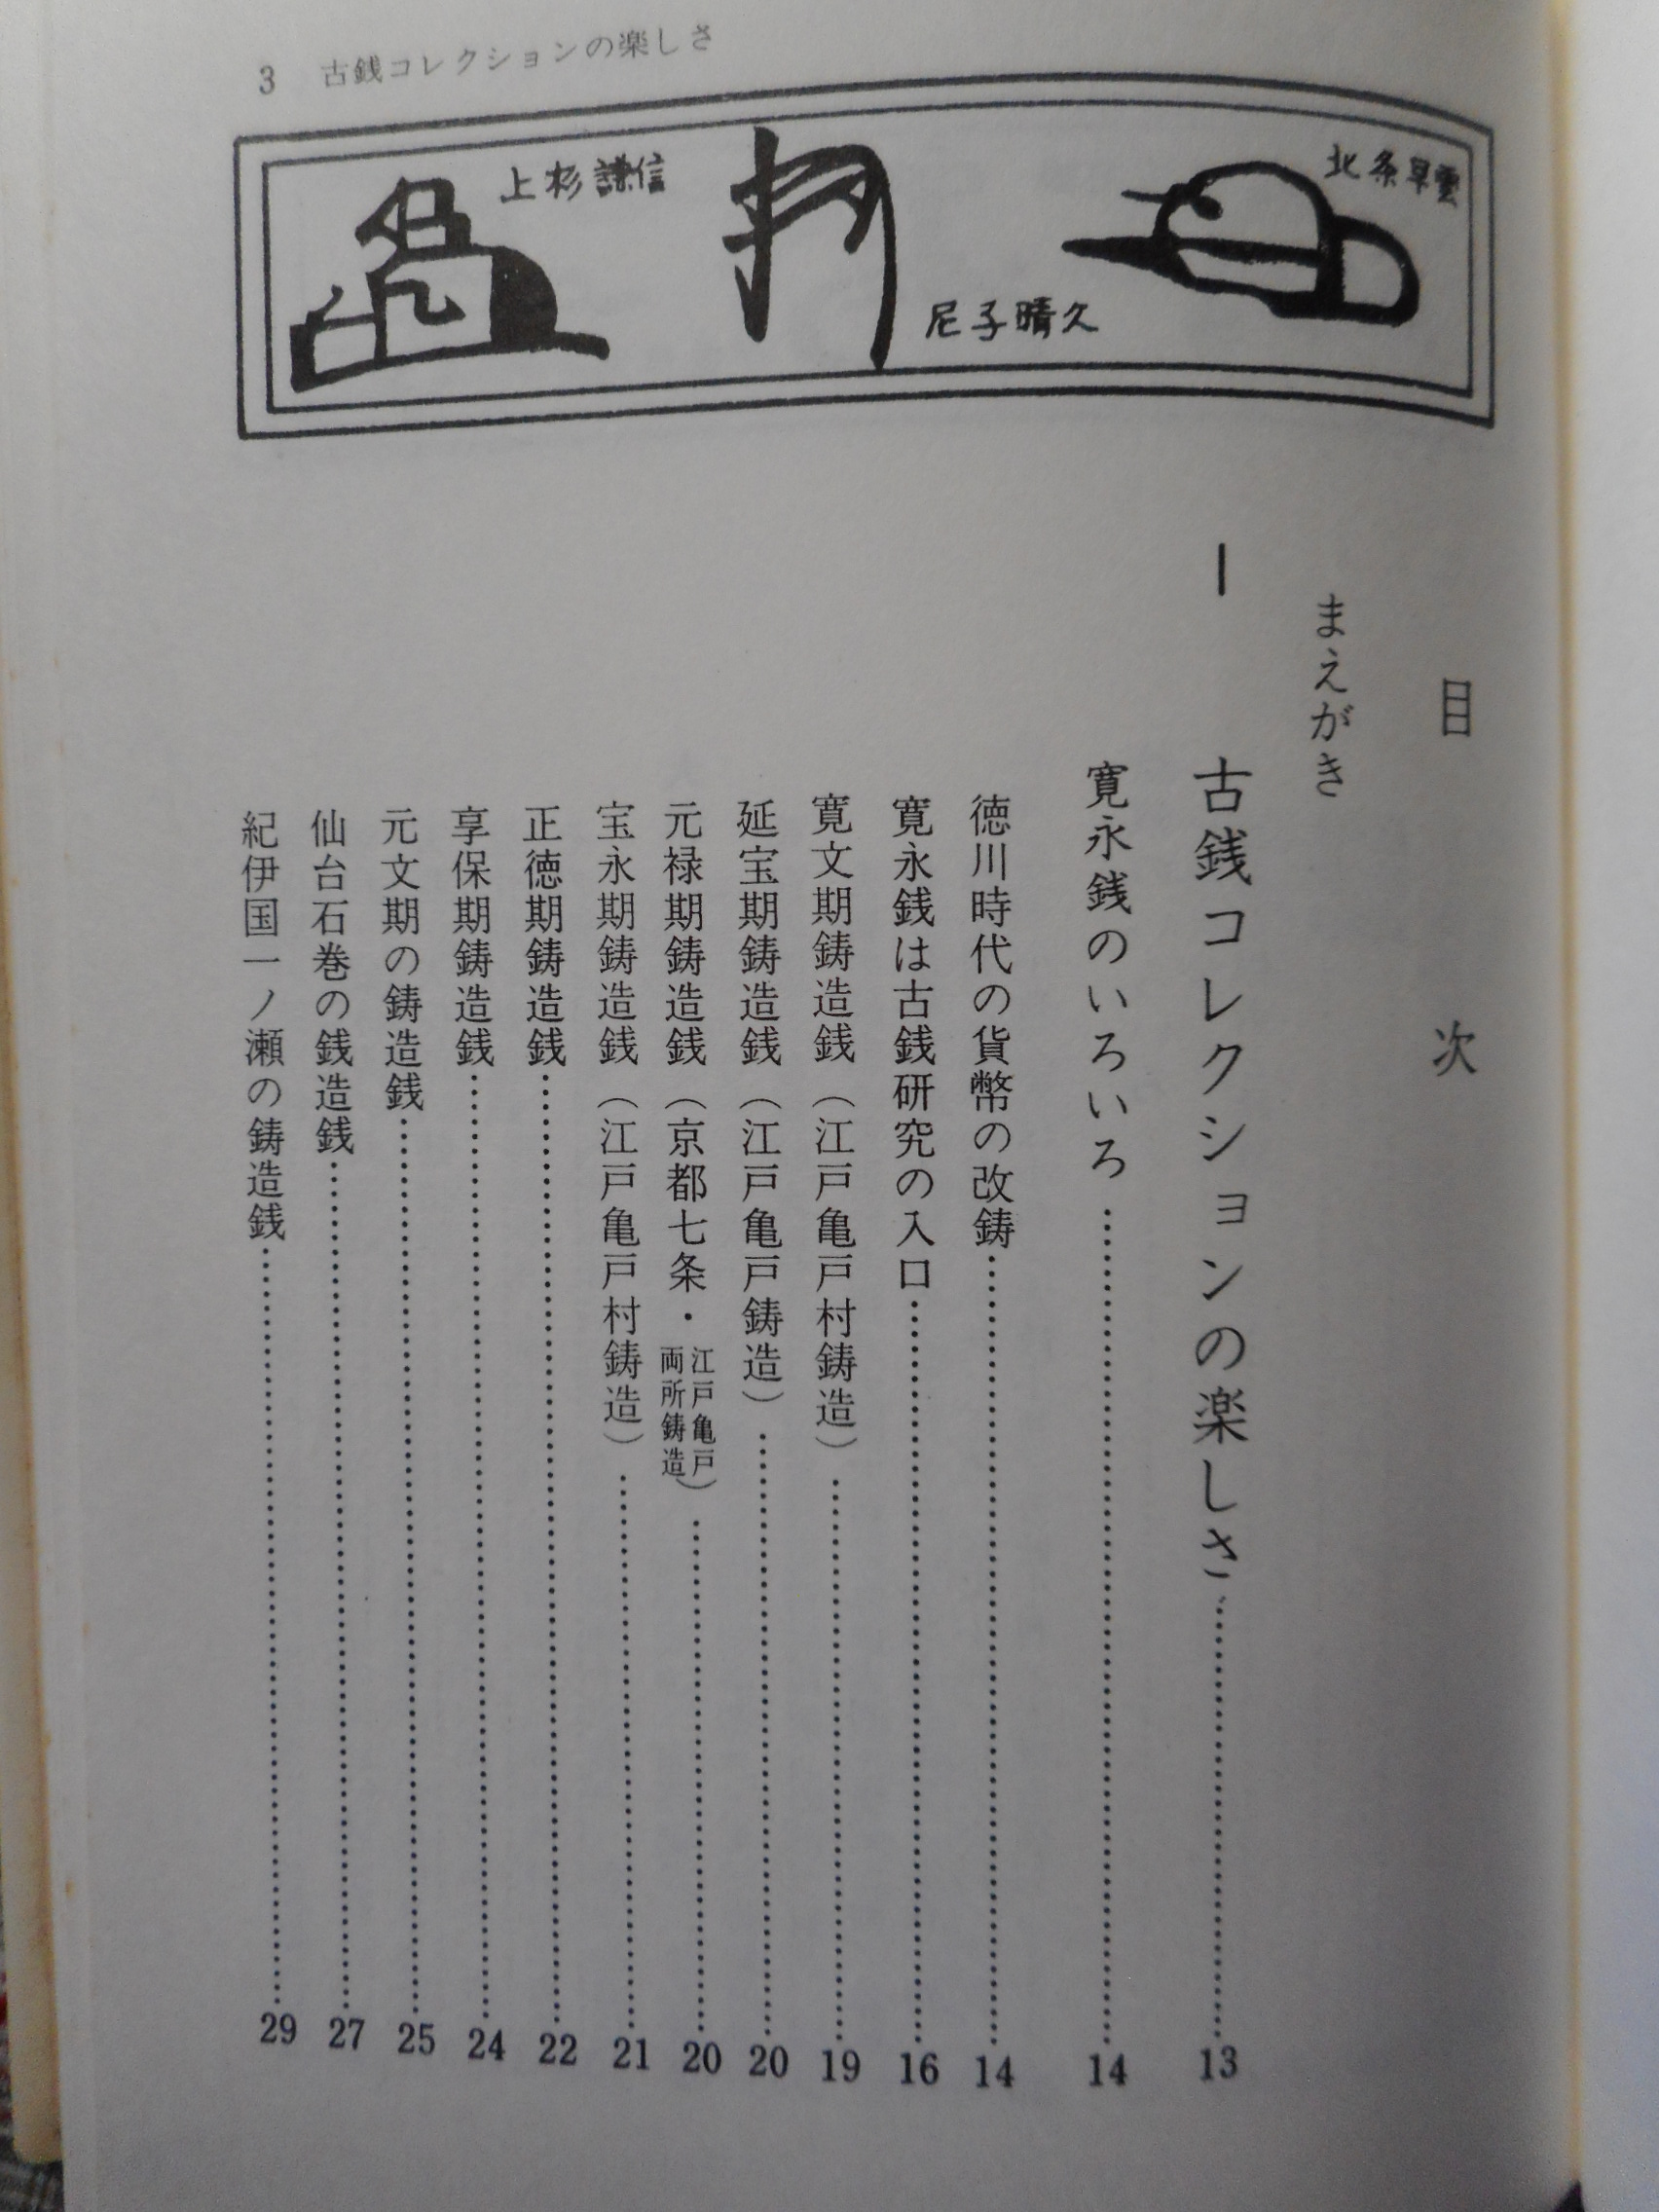 3 古銭コレクションの楽しさ
北条早雲
尼子晴久
上杉謙信
目次
まえがき
I 古銭コレクションの楽しさ……13
寛永銭のいろいろ……14
徳川時代の貨幣の改鋳……14
寛永銭は古銭研究の入口……16
寛文期鋳造銭（江戸亀戸村鋳造）……19
延宝期鋳造銭（江戸亀戸鋳造）……20
元禄期鋳造銭（京都七条・江戸亀戸両所鋳造）……20
宝永期鋳造銭（江戸亀戸村鋳造）……21
正徳期鋳造銭……22
享保期鋳造銭……24
元文期の鋳造銭……25
仙台石巻の銭造銭……27
紀伊国一ノ瀬の鋳造銭……29